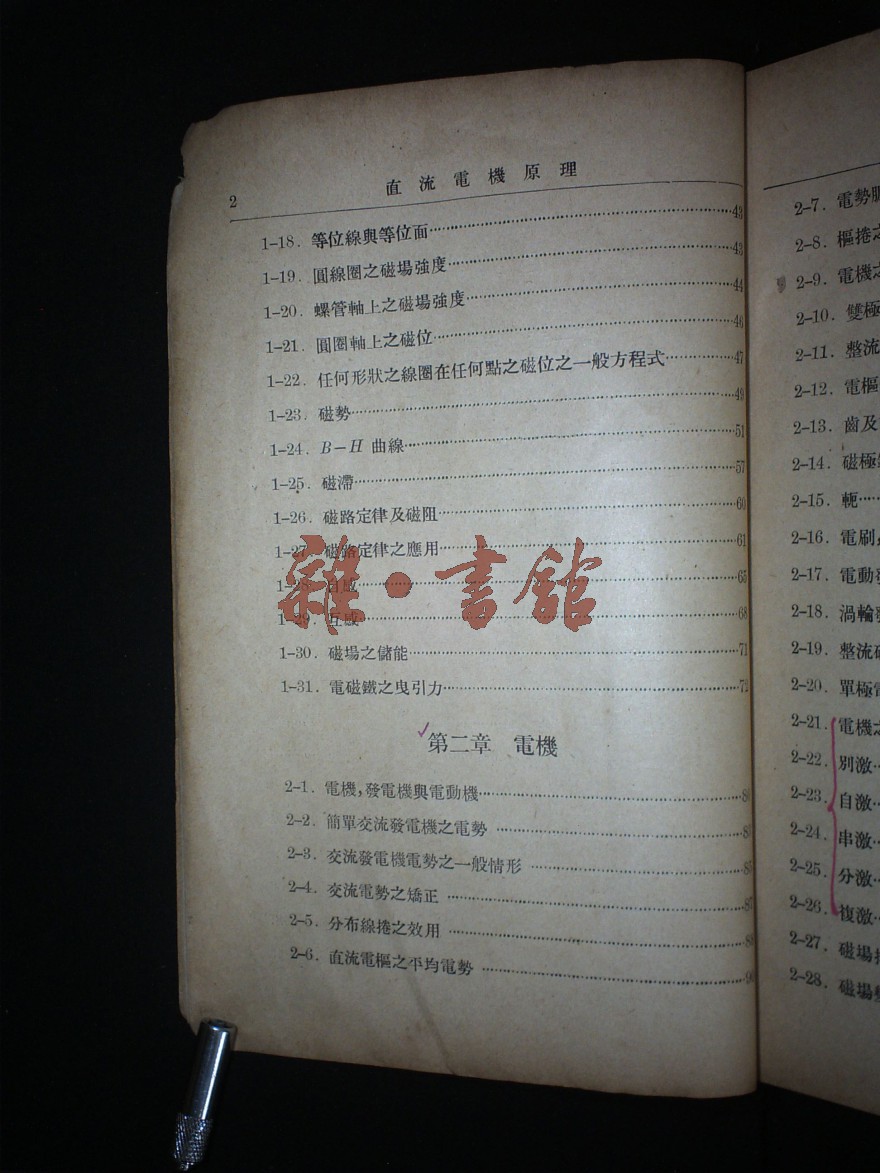 2
直流電機原理
1-18. 等位線與等位面……43
1-19. 圓線圈之磁場強度……43
1-20. 螺管軸上之磁場強度……44
1-21. 圓圈軸上之磁位……46
1-22. 任何形狀之線圈在任何點之磁位之一般方程式……47
1-23. 磁勢……49
1-24. B-H 曲線……51
1-25. 磁滯……57
1-26. 磁路定律及磁阻……60
1-27. 磁路定律之應用……61
1-28. 自感……65
1-29. 互感……68
1-30. 磁場之儲能……71
1-31. 電磁鐵之曳引力……72
雜·書館
第二章 電機
2-1. 電機,發電機與電動機……
2-2. 簡單交流發電機之電勢……
2-3. 交流發電機電勢之一般情形……85
2-4. 交流電勢之矯正……87
2-5. 分布線捲之效用……88
2-6. 直流電樞之平均電勢……
2-7. 電勢
2-8. 樞捲之
2-9. 電機之
2-10. 雙極
2-11. 整流
2-12. 電樞
2-13. 齒及
2-14. 磁極
2-15. 軛……
2-16. 電刷
2-17. 電動
2-18. 渦輪
2-19. 整流
2-20. 單極
2-21. 電機之
2-22. 別激…
2-23. 自激…
2-24. 串激…
2-25. 分激…
2-26. 複激…
2-27. 磁場
2-28. 磁場